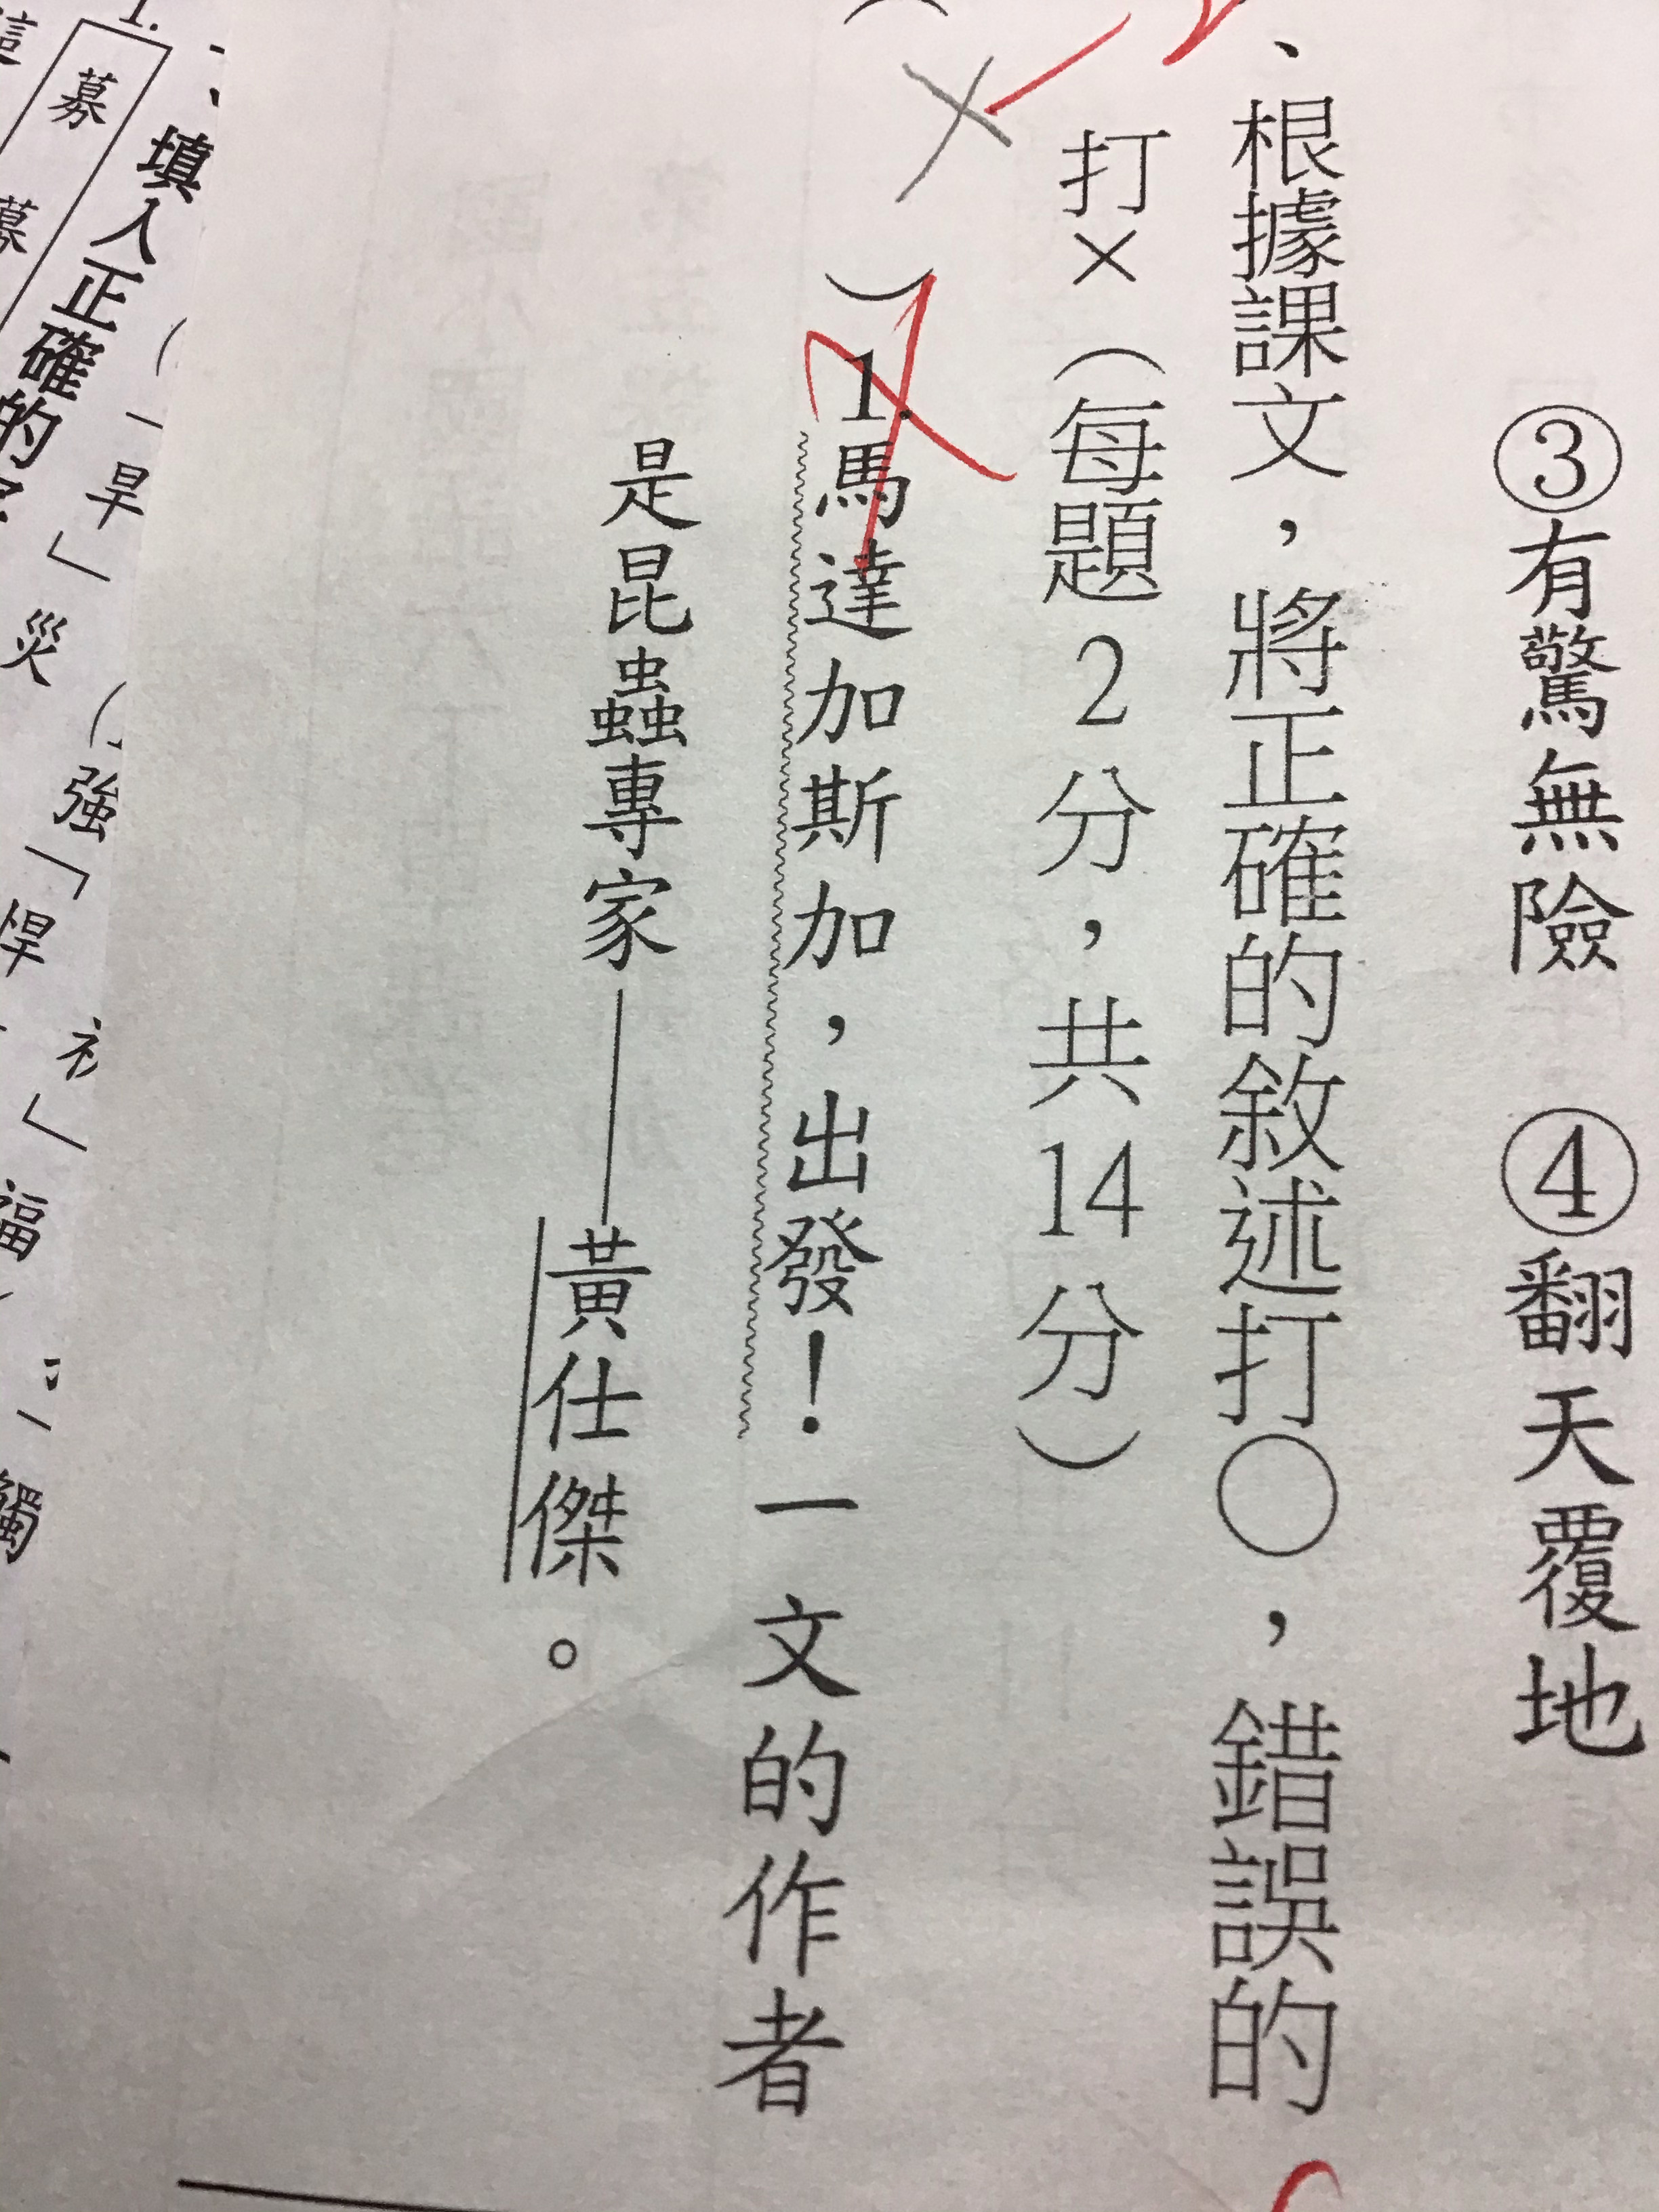 ③有驚無險 ④翻天覆地
、根據課文，將正確的敘述打○，錯誤的
打×（每題2分，共14分）
（×）1.馬達加斯加，出發！一文的作者
是昆蟲專家——黃仕傑。
、填入正確的
（「旱」災 （強「悍
1.
募